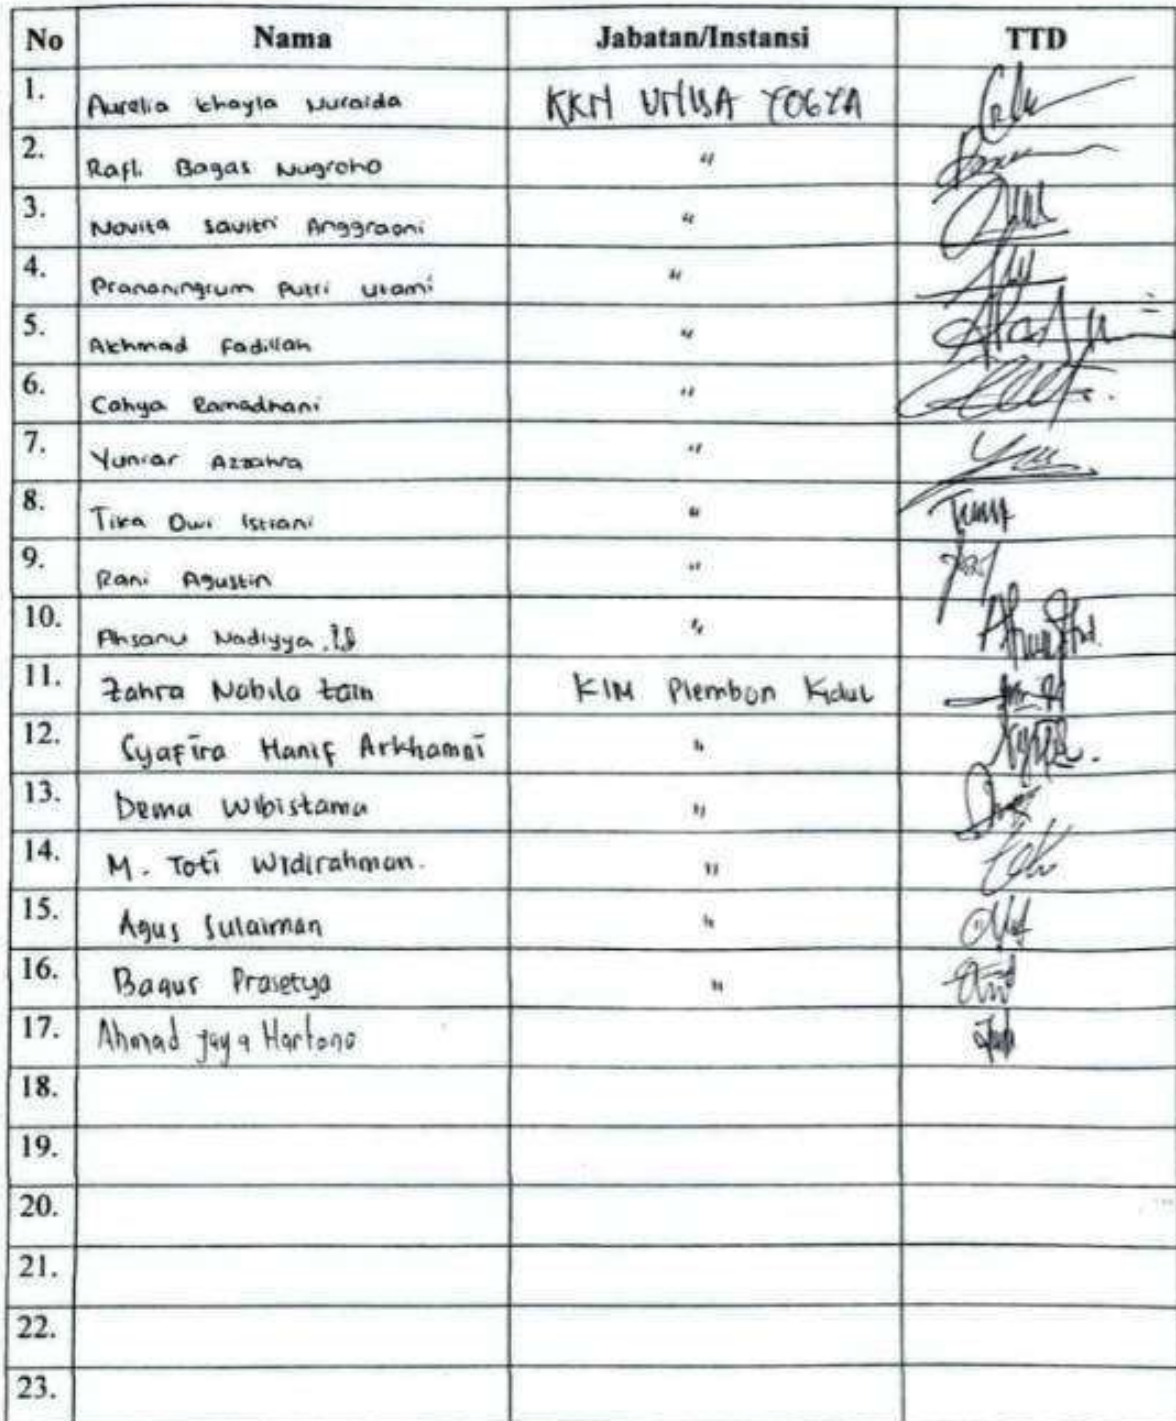 No Nama Jabatan/Instansi TTD
1. Aurelia Khayla Nuraida KKN UNISA YOGYA
2. Rafli Bagas Nugroho "
3. Novita Savitri Anggraani "
4. Prananingrum Putri Utami "
5. Akhmad Fadillah "
6. Cahya Ramadhani "
7. Yuniar Azzahra "
8. Tika Dwi Istiani "
9. Rani Agustin "
10. Ahsanu Nadiyya "
11. Zahra Nabila Zain KIM Plembon Kidul
12. Syafira Hanif Arkhamni "
13. Dema Wibistama "
14. M. Toti Widirahman. "
15. Agus Sulaiman "
16. Bagus Prasetya "
17. Ahmad Jaya Hartono
18.
19.
20.
21.
22.
23.